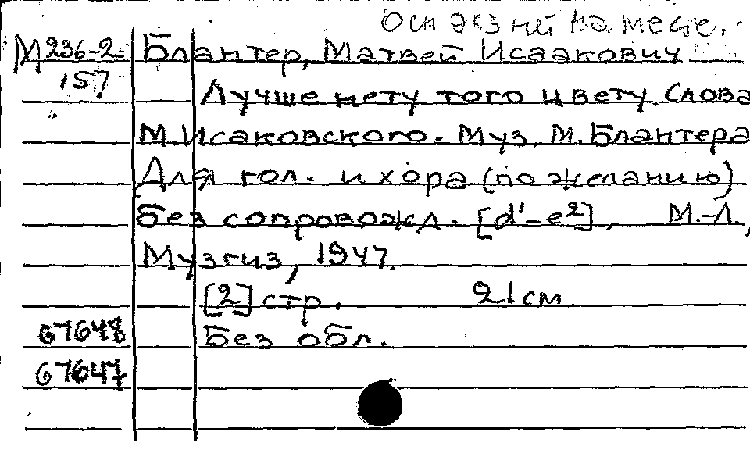 Осн экз на месте.
М 236-2 Блантер, Матвей Исаакович
157 Лучше нету того цвету Слова
М.Исаковского. Муз. М.Блантера
Для гол. и хора (по желанию)
без сопровожд. [d¹-e²], М.-Л.,
Музгиз, 1947.
[2] стр. 21 см
67648 Без обл.
67647